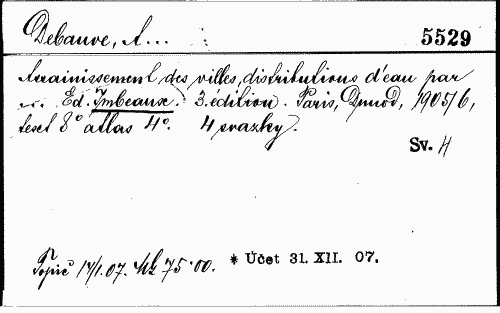 Debauve, A...
5529
Assainissement des villes, distributions d'eau par
... Ed. Imbeaux. 3. édition. Paris, Dunod, 1905/6,
text 8° atlas 4°. 4 svazky.
Sv. 4
Topič 17/1.07. Mk 75·00. * Účet 31. XII. 07.